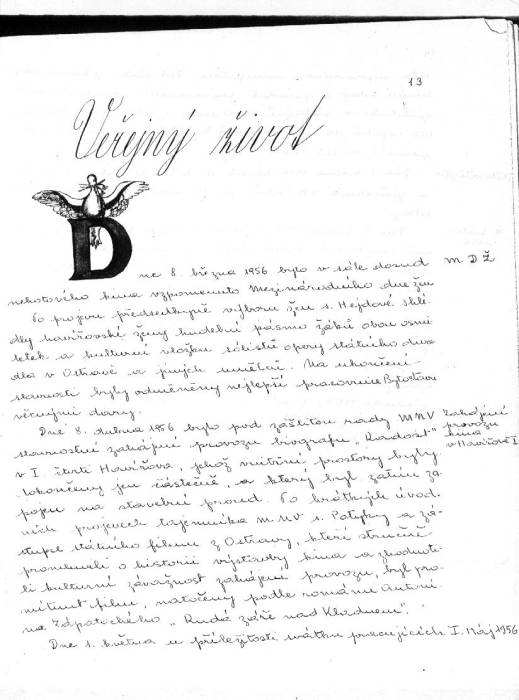 13
Veřejný život
Dne 8. března 1956 bylo v sále dosud MDŽ
nehotového kina vzpomenuto Mezinárodního dne žen
Po projevu předsedkyně výboru žen s. Hejdové shlé-
dly havířovské ženy hudební pásmo žáků obou osmi-
letek a kulturní vložku sólistů opery státního diva
dla v Ostravě a jiných umělců. Na ukončení
slavnosti byly odměněny nejlepší pracovnice Bytostavu
věcnými dary.
Dne 8. dubna 1956 bylo pod záštitou rady MNV Zahájení
slavnostně zahájení provozu biografu „Radost" provozu
kina
v I. čtvrti Havířova, jehož vnitřní prostory byly v Havířově I
dokončeny jen částečně, a který byl zatím za-
pojen na stavební proud. Po krátkých úvod.
ních projevech tajemníka MNV s. Potyky a zá-
stupce státního filmu z Ostravy, kteří stručně
promluvili o historii výstavby kina a zhodnoti-
li kulturní závažnost zahájení provozu, byl pro-
mítnut film, natočený podle románu Antoní-
na Zápotockého „Rudá záře nad Kladnem".
Dne 1. května u příležitosti svátku pracujících I. Máj 1956